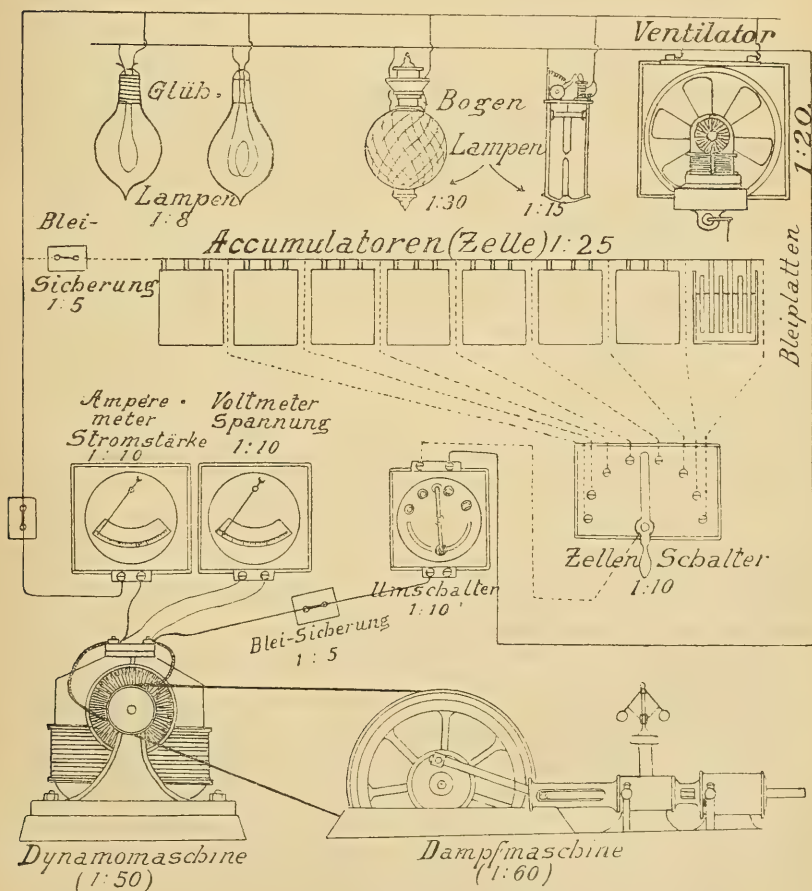 Ventilator
Glüh-
Lampen
1:8
Bogen
Lampen
1:30
1:15
1:20
Blei-
Sicherung
1:5
Accumulatoren (Zelle) 1:25
Bleiplatten
Ampère-
meter
Stromstärke
1:10
Voltmeter
Spannung
1:10
Umschalter
1:10
Zellen Schalter
1:10
Blei-Sicherung
1:5
Dynamomaschine
(1:50)
Dampfmaschine
(1:60)